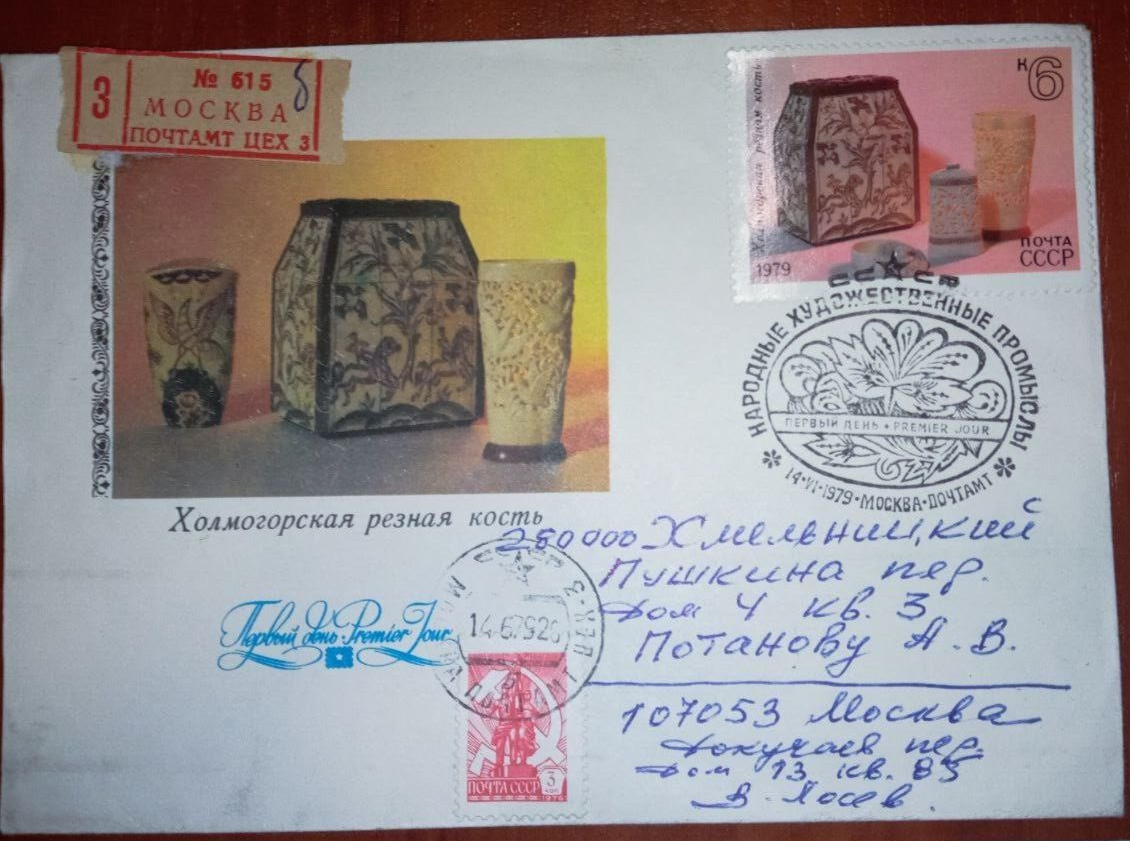 З
№ 615 б
МОСКВА
ПОЧТАМТ ЦЕХ 3
Холмогорская резная кость
К 6
ПОЧТА
СССР
1979
СССР
НАРОДНЫЕ ХУДОЖЕСТВЕННЫЕ ПРОМЫСЛЫ
ПЕРВЫЙ ДЕНЬ • PREMIER JOUR
14•VI•1979•МОСКВА•ПОЧТАМТ
Холмогорская резная кость
280000 Хмельницкий
Пушкина пер.
дом 4 кв. 3
Потанову А. В.
Первый день • Premier Jour
МОСКВА ПОЧТАМТ ЦЕХ-3
14-67920
ПОЧТА СССР
3
КОП
1976
107053 Москва
Докучаев пер.
дом 13 кв. 85
В. Лосев.